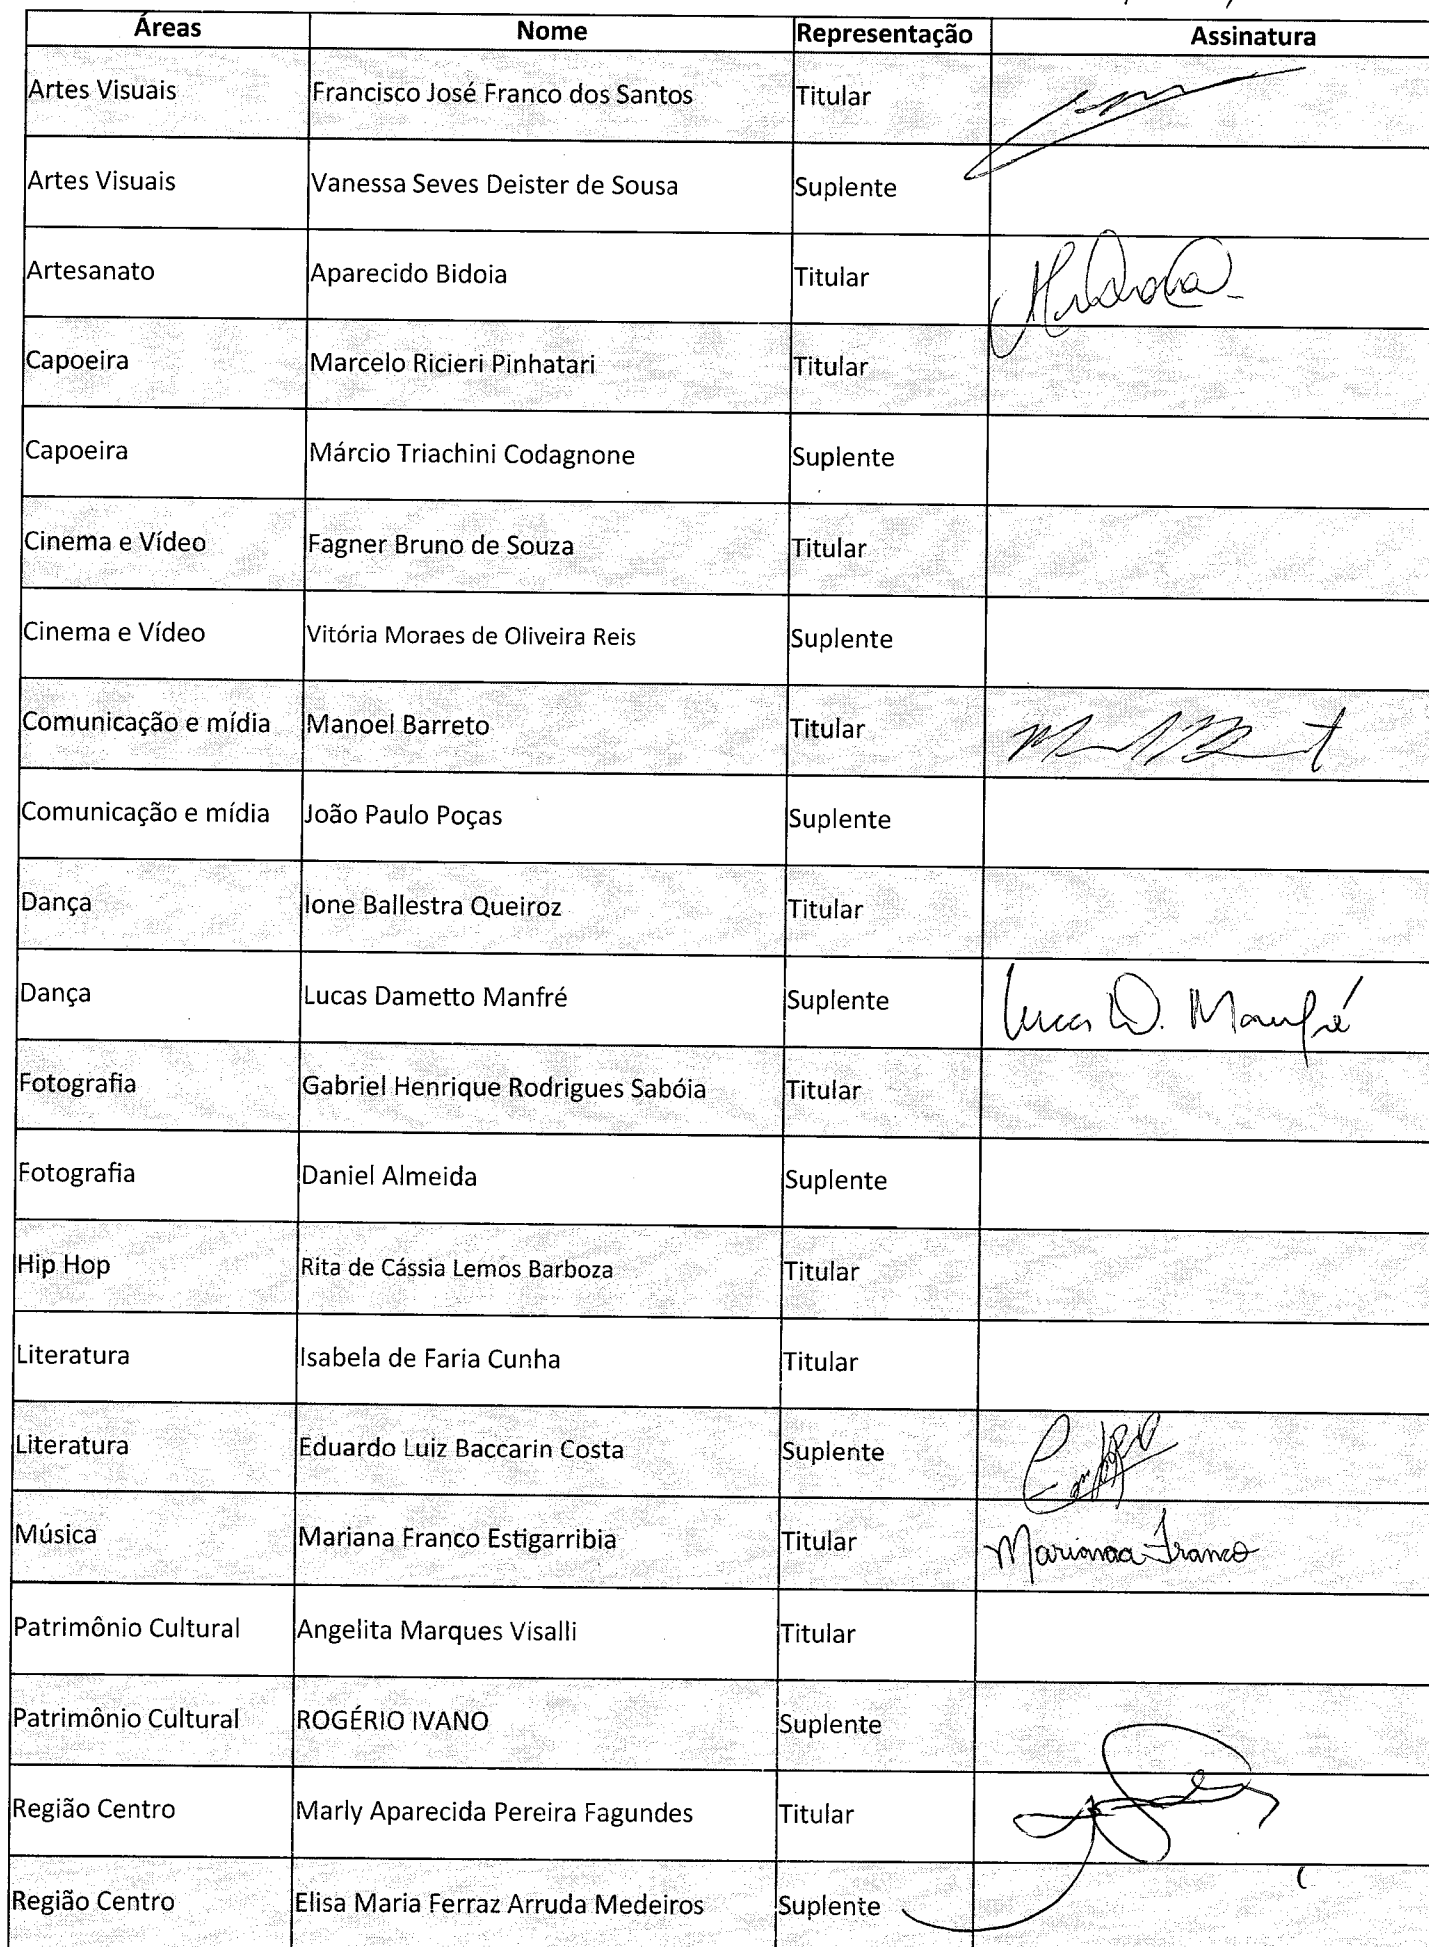 Áreas Nome Representação Assinatura
Artes Visuais Francisco José Franco dos Santos Titular
Artes Visuais Vanessa Seves Deister de Sousa Suplente
Artesanato Aparecido Bidoia Titular
Capoeira Marcelo Ricieri Pinhatari Titular
Capoeira Márcio Triachini Codagnone Suplente
Cinema e Vídeo Fagner Bruno de Souza Titular
Cinema e Vídeo Vitória Moraes de Oliveira Reis Suplente
Comunicação e mídia Manoel Barreto Titular
Comunicação e mídia João Paulo Poças Suplente
Dança Ione Ballestra Queiroz Titular
Dança Lucas Dametto Manfré Suplente Lucas D. Manfré
Fotografia Gabriel Henrique Rodrigues Sabóia Titular
Fotografia Daniel Almeida Suplente
Hip Hop Rita de Cássia Lemos Barboza Titular
Literatura Isabela de Faria Cunha Titular
Literatura Eduardo Luiz Baccarin Costa Suplente
Música Mariana Franco Estigarribia Titular Mariana Franco
Patrimônio Cultural Angelita Marques Visalli Titular
Patrimônio Cultural ROGÉRIO IVANO Suplente
Região Centro Marly Aparecida Pereira Fagundes Titular
Região Centro Elisa Maria Ferraz Arruda Medeiros Suplente